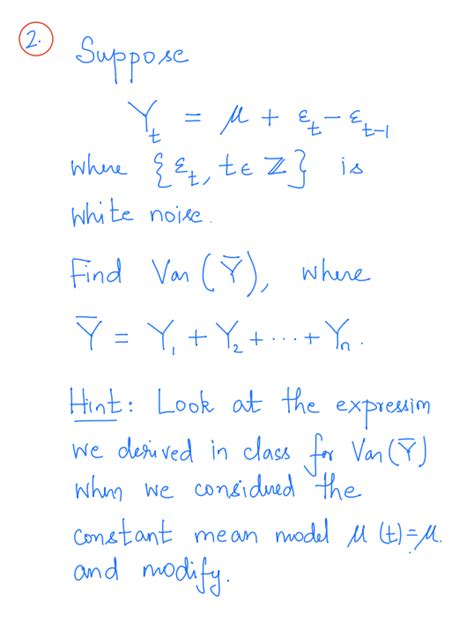 2.
Suppose
Y_t = μ + ε_t - ε_{t-1}
where {ε_t, t ∈ ℤ} is
white noise.
Find Var (Ȳ), where
Ȳ = Y_1 + Y_2 + ... + Y_n.
Hint: Look at the expression
we derived in class for Var(Ȳ)
when we considered the
constant mean model μ(t)=μ.
and modify.